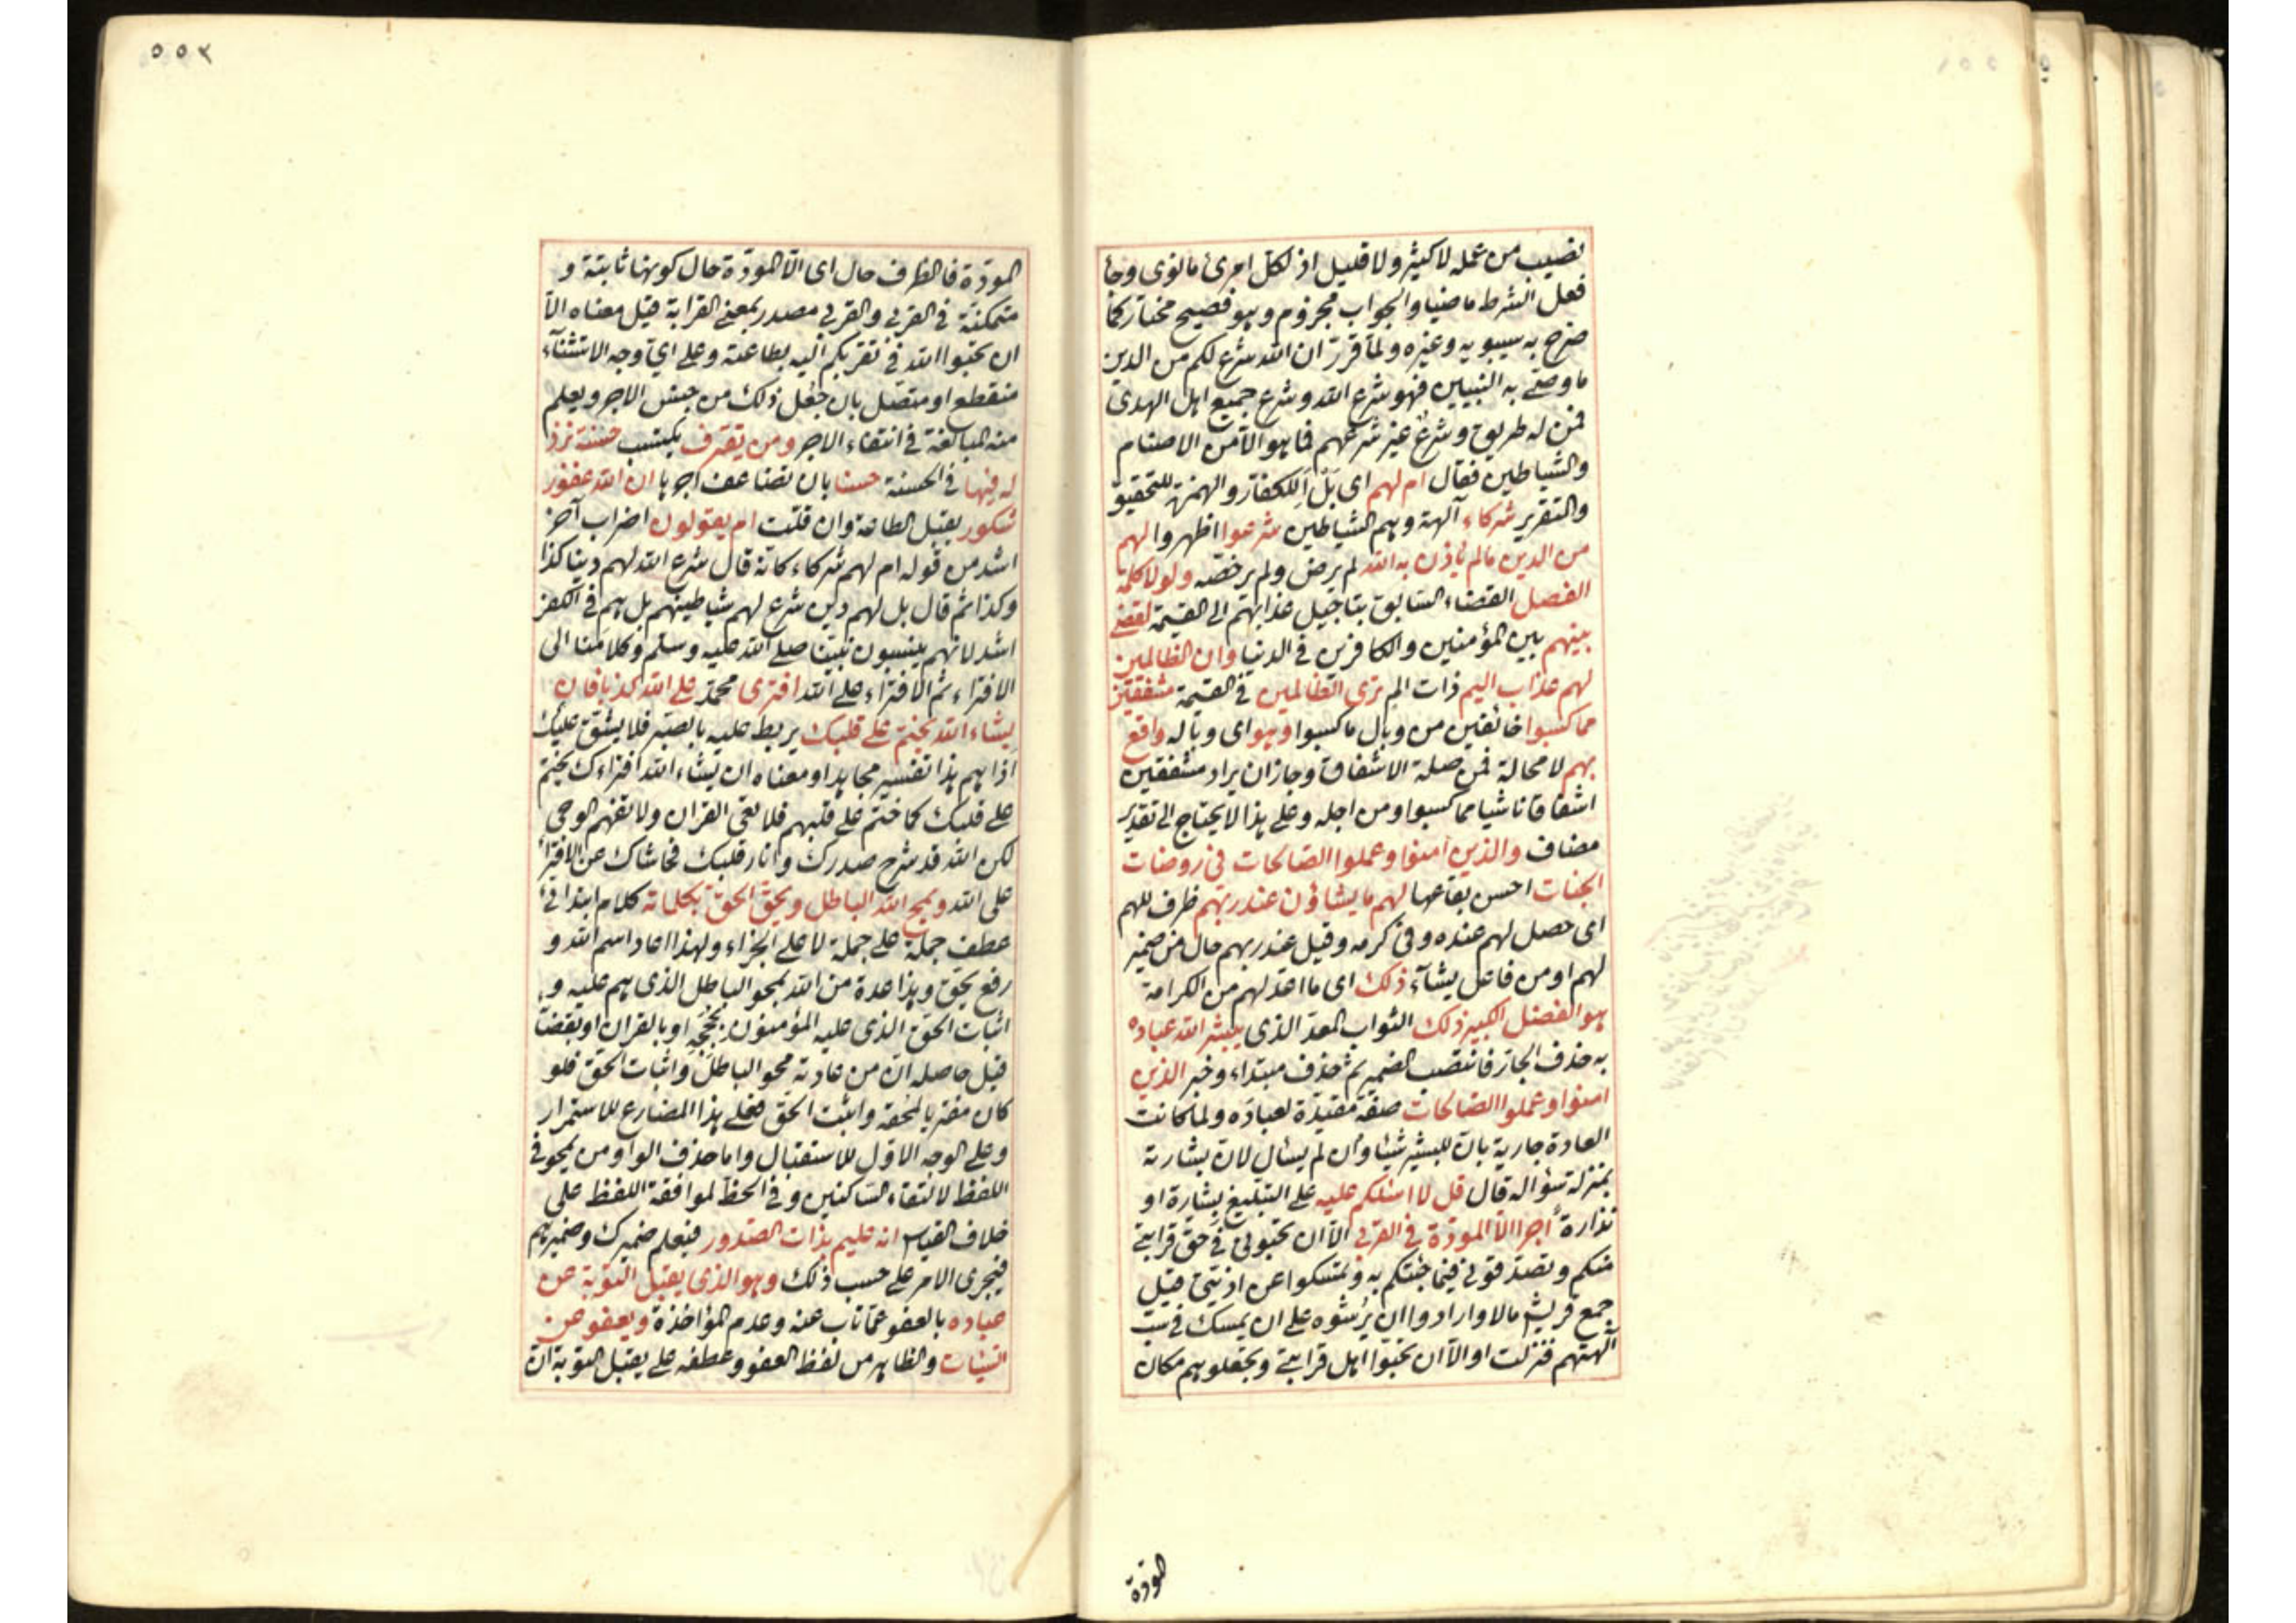 نصيب من عمله لا كثير ولا قليل اذ لكل امرئ ما نوى وجا
فعل الشرط ماضيا والجواب مجزوم وهو فصيح مختار كما
صرح به سيبويه وغيره ولما قرر ان الله شرع لكم من الدين
ما وصى به النبيين فهو شرع الله وشرع جميع اهل الهدى
فمن له طريق وشرع غير شرعهم فما هو الا من الاصنام
والشياطين فقال ام لهم اى بل أللكفار والهمزة للتحقيق
والتقرير شركاء آلهة وهم الشياطين شرعوا اظهروا لهم
من الدين ما لم ياذن به الله لم يرض ولم يرخصه ولولا كلمة
الفصل القضاء السابق بتاجيل عذابهم الى القيمة لقضى
بينهم بين المؤمنين والكافرين في الدنيا وان الظالمين
لهم عذاب اليم ذات الم ترى الظالمين في القيمة مشفقين
مما كسبوا خائفين من وبال ما كسبوا وهو اى وباله واقع
بهم لا محالة فمن صلة الاشفاق وجاز ان يراد مشفقين
اشفاقا ناشيا مما كسبوا ومن اجله وعلى هذا لا يحتاج الى تقدير
مضاف والذين آمنوا وعملوا الصالحات في روضات
الجنات احسن بقاعها لهم ما يشاؤن عند ربهم ظرف للهم
اى حصل لهم عنده وفي كرمه وقيل عند ربهم حال من ضمير
لهم او من فاعل يشاء ذلك اى ما اعد لهم من الكرامة
هو الفضل الكبير ذلك الثواب المعد الذى يبشر الله عباده
به حذف الجار فانتصب الضمير ثم حذف مبتداء وخبر الذين
امنوا وعملوا الصالحات صفة مقيدة لعباده ولما كانت
العادة جارية بان للبشير شيئا وان لم يسال لان بشارته
بمنزلة سؤاله قال قل لا اسئلكم عليه على التبليغ بشارة او
نذارة أجرا الا المودة في القربى الا ان تحبوني في حق قرابتي
منكم وتصدقوني فيما جئتكم به وتمسكوا عن اذيتي قيل
جمع قريش مالا وارادوا ان يرشوه على ان يمسك في سب
آلهتهم فنزلت او الا ان تحبوا اهل قرابتي وتجعلوهم مكان
المودة
٥٥٢
المودة فالظرف حال اى الا المودة حال كونها ثابتة و
متمكنة في القربى والقربى مصدر بمعنى القرابة قيل معناه الا
ان تحبوا الله في تقربكم اليه بطاعته وعلى اي وجه الاستثناء
منقطع او متصل بان جعل ذلك من جنس الاجر ويعلم
منه المبالغة في انتفاء الاجر ومن يقترف يكتسب حسنة نزد
له فيها في الحسنة حسنا بان نضاعف اجرها ان الله غفور
شكور يقبل الطاعة وان قلت ام يقولون اضراب آخر
اشد من قوله ام لهم شركاء كانه قال شرع الله لهم دينا كذا
وكذا ثم قال بل لهم دين شرع لهم شياطينهم بل هم في الكفر
اشد لانهم ينسبون نبينا صلى الله عليه وسلم وكلامنا الى
الافتراء ثم الافتراء على الله افترى محمد على الله كذبا فان
يشاء الله يختم على قلبك يربط عليه بالصبر فلا يشق عليك
اذاهم هذا تفسير مجاهد او معناه ان يشاء الله افتراءك يختم
على قلبك كما ختم على قلبهم فلا تعى القران ولا تفهم الوحي
لكن الله قد شرح صدرك وانار قلبك فحاشاك عن الافترا
على الله ويمح الله الباطل ويحق الحق بكلماته كلام ابتدائي
عطف جملة على جملة لا على الجزاء ولهذا اعاد اسم الله و
رفع يحق وهذا عدة من الله بمحو الباطل الذى هم عليه و
اثبات الحق الذى عليه المؤمنون بحججه او بالقران او بقضائه
قيل حاصله ان من عادته محو الباطل واثبات الحق فلو
كان مفتريا لمحقه واثبت الحق فعلى هذا المضارع للاستمرار
وعلى الوجه الاول للاستقبال واما حذف الواو من يمحو في
اللفظ لالتقاء الساكنين وفي الخط لموافقة اللفظ على
خلاف القياس انه عليم بذات الصدور فيعلم ضميرك وضميرهم
فيجرى الامر على حسب ذلك وهو الذى يقبل التوبة عن
عباده بالعفو عما تاب عنه وعدم المؤاخذة ويعفو عن
السيئات والظاهر من لفظ العفو وعطفه على يقبل التوبة ان